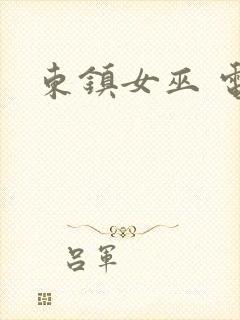 東鎮女巫
呂軍